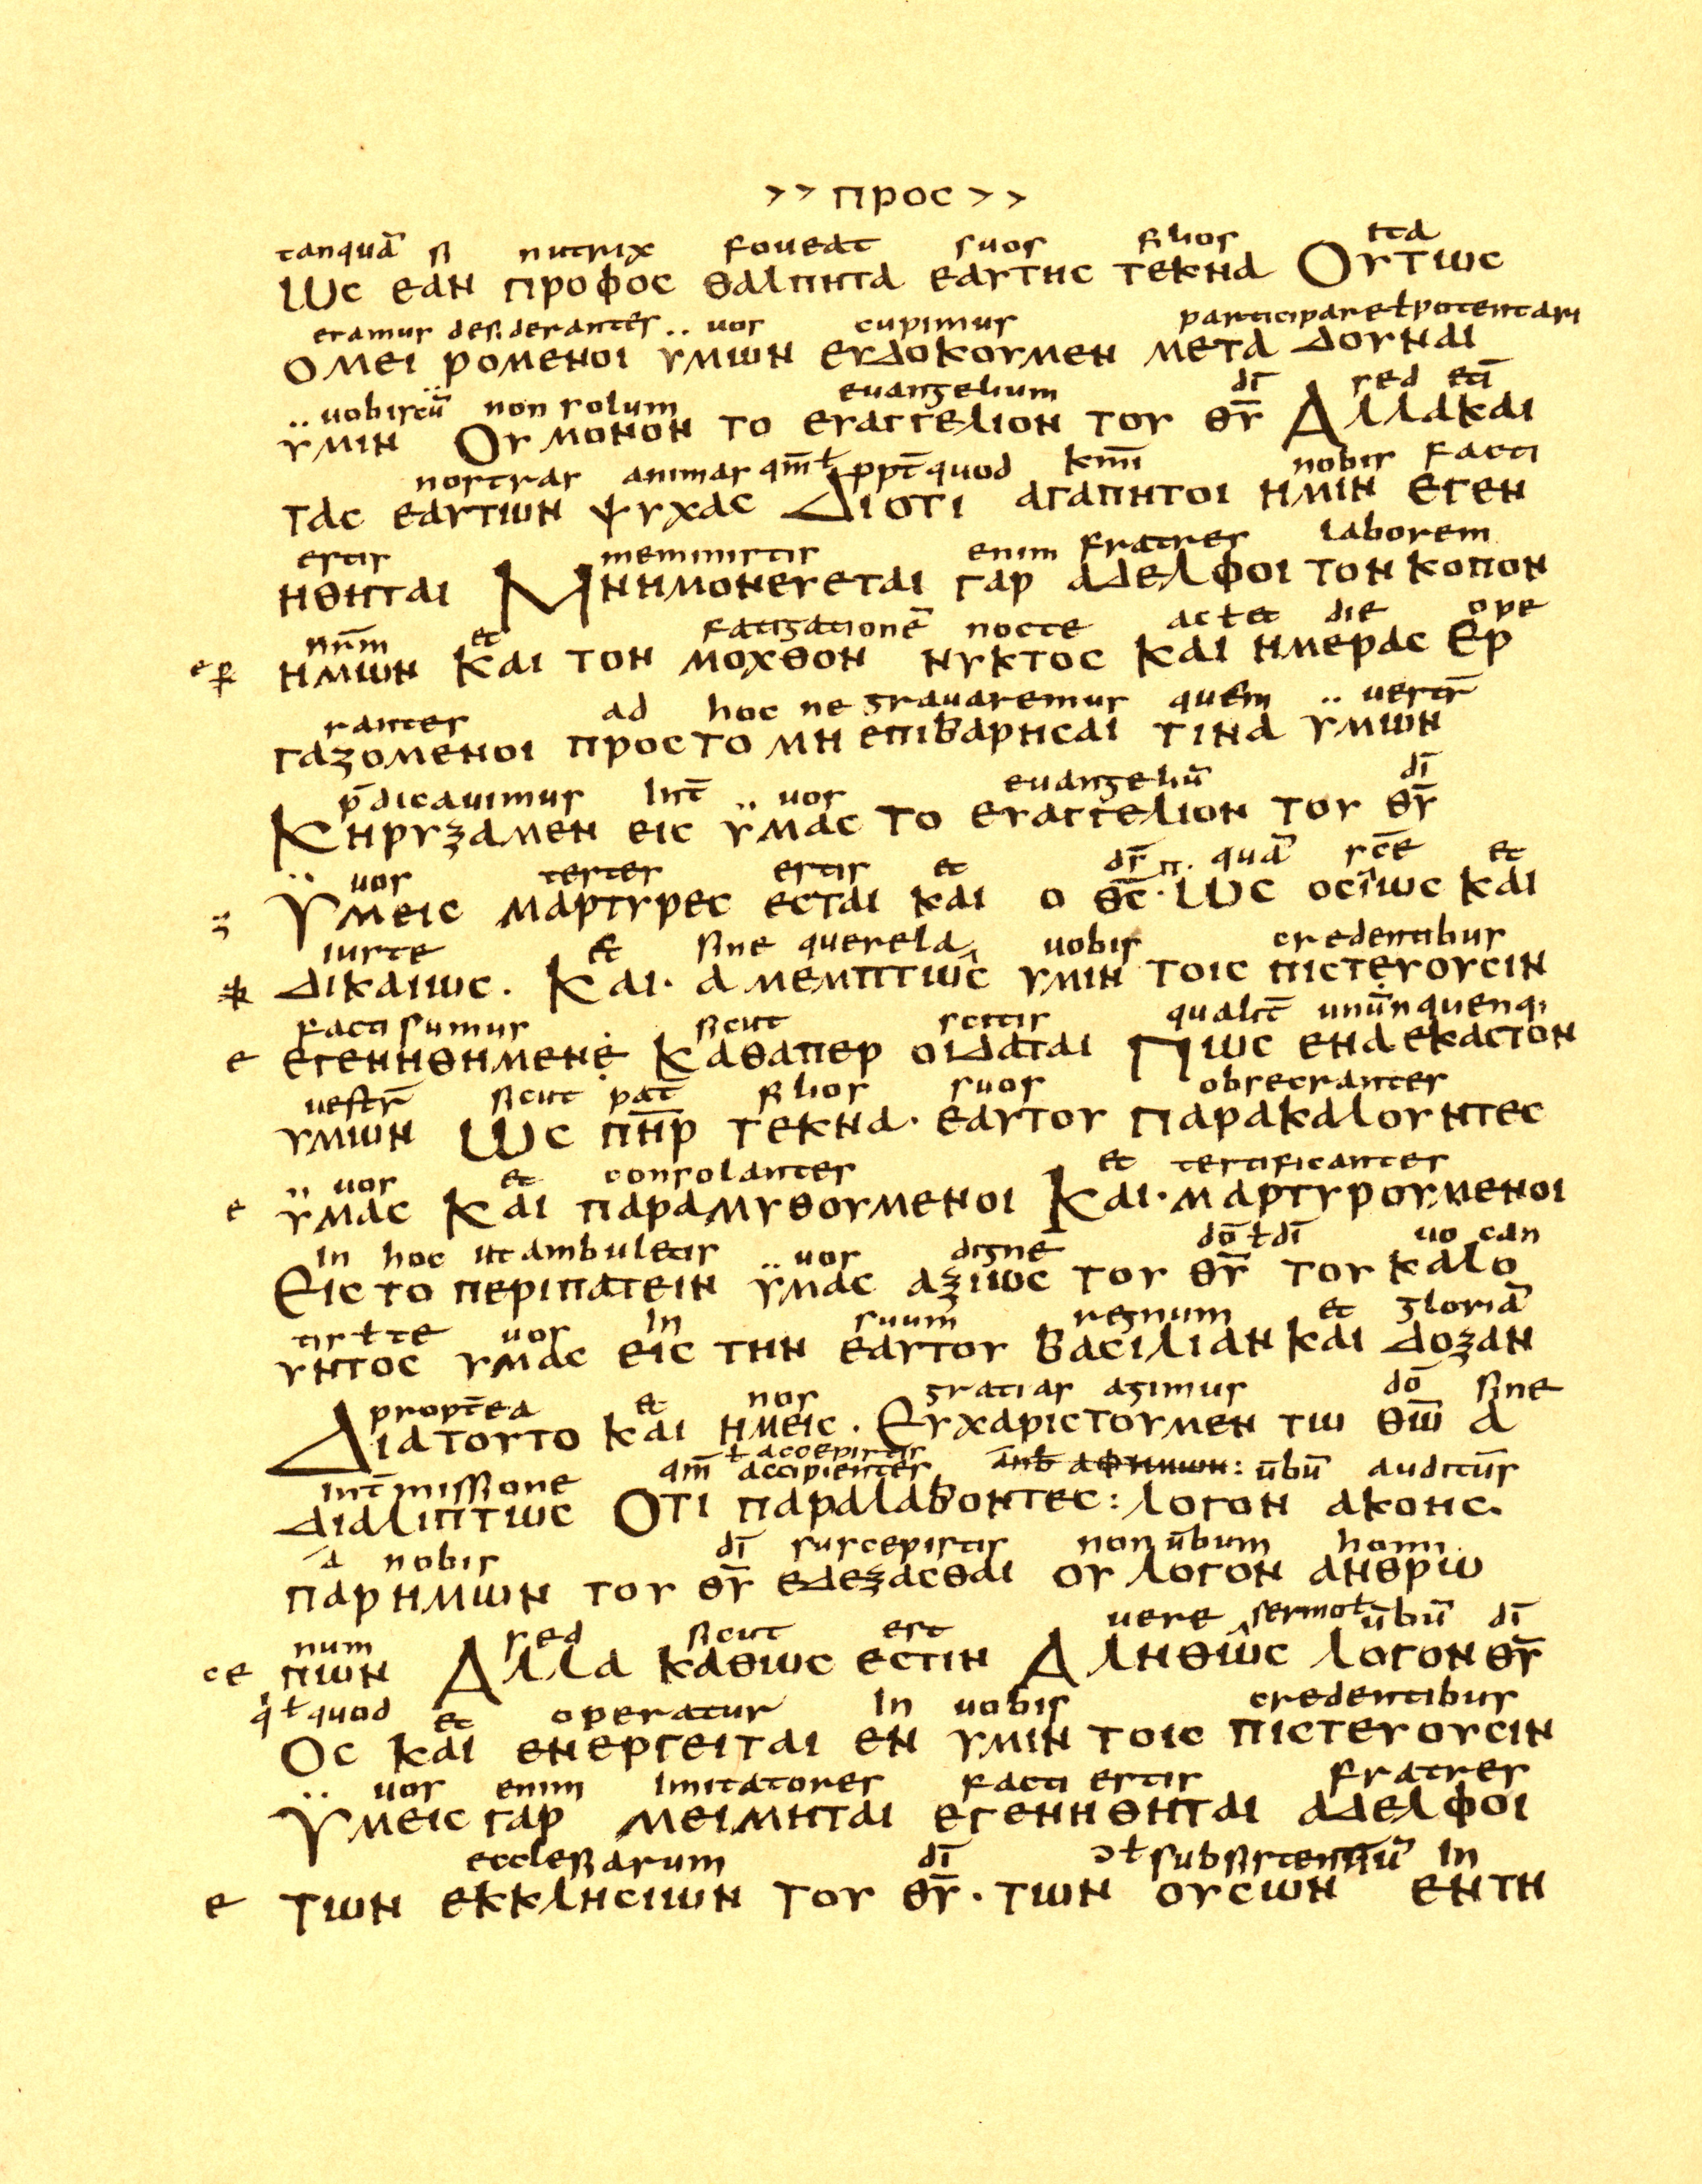 >> προς >>
tanquā si nutrix foueat suos filios ita
ως εαν προφος θαλπητα εαυτης τεκνα Ουτως
eramus desiderantes .. uos cupimus participare ł potentari
ομει ρομενοι υμων ευδοκουμεν μετα δουναι
.. uobiscū non solum euangelium dī sed etī
υμιν Ου μονον το ευαγγελιον του θ̅υ̅ Αλλακαι
nostras animas qm̄ ł ppt̄ quod km̄i nobis facti
τας εαυτων ψυχας Διοτι αγαπητοι ημιν εγεν
estis meministis enim fratres laborem
ηθηται Μνημονευεται γαρ αδελφοι τον κοπον
nr̄m et fatigationē nocte ac ł et die ope
ημων και τον μοχθον νυκτος και ημερας Ερ
rantes ad hoc ne grauaremus quem .. uestr̄
γαζομενοι προς το μη επιβαρησαι τινα υμων
p̄dicauimus int̄ .. uos euangeliū dī
Κηρυξαμεν εις υμας το ευαγγελιον του θ̅υ̅
.. uos testes estis et dī π. quā sc̄e et
Υμεις μαρτυρες εσται και ο θ̅ς̅· ως οσιως και
iuste et sine querela uobis credentibus
δικαιως. Και· αμεμπτως υμιν τοις πιστευουσιν
facti sumus sicut scitis qualit̄ unūnquenqi
ε εγενηθημενε Καθαπερ οιδαται Πως εναεκαστον
uestr̄ sicut pat̄ filios suos obsecrantes
υμων ως π̅η̅ρ̅ τεκνα· εαυτου παρακαλουντες
.. uos et consolantes et testificantes
ε υμας και παραμυθουμενοι Και·μαρτυρουμενοι
in hoc ut ambuletis .. uos digne dō ł dī uo can
Εις το περιπατειν υμας αξιως του θ̅υ̅ του καλο
tis ł te uos in suum regnum et gloriā
υντος υμας εις την εαυτου βασιλιαν και δοξαν
propt̄ea et nos gratias agimus dō sine
Διατουτο και ημεις. Ευχαριστουμεν τω θ̅ω̅ α
int̄missione qm̄ accipientes ł accepistis ūbū auditūs
διαλιπτως Οτι παραλαβοντες: λογον ακοης.
ā nobis dī suscepistis non ūbum homi
παρημων του θ̅υ̅ εδεξασθαι ου λογον ανθρω
num sed sicut est uere sermo ł ūbū dī
ce πων Αλλα καθως εστιν Αληθως λογον θ̅υ̅
q̇ ł quod et operatur in uobis credentibus
Ος και ενεργειται εν υμιν τοις πιστευουσιν
.. uos enim imitatores facti estis fratres
Υμεις γαρ μειμηται εγενηθηται αδελφοι
ecclesiarum dī ↄ ł subsistentiū in
ε των εκκλησιων του θ̅υ̅. των ουσων εν τη